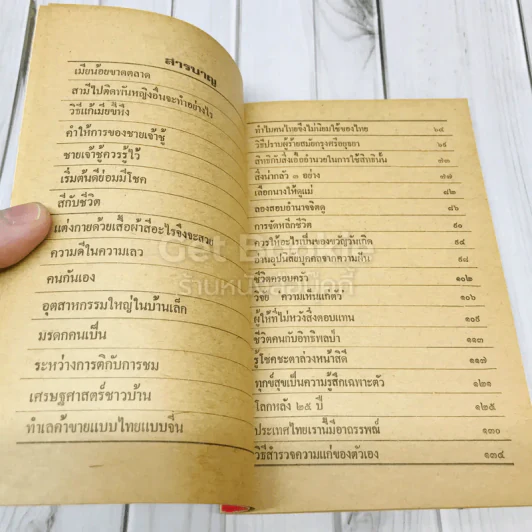 สารบาญ
เมียน้อยขาดตลาด
สามีไปติดพันหญิงอื่นจะทำอย่างไร
วิธีแก้เมียขี้หึง
คำให้การของชายเจ้าชู้
ชายเจ้าชู้ควรรู้ไว้
เริ่มต้นดีย่อมมีโชค
สีกับชีวิต
แต่งกายด้วยเสื้อผ้าสีอะไรจึงจะสวย
ความดีในความเลว
คนกันเอง
อุตสาหกรรมใหญ่ในบ้านเล็ก
มรดกคนเป็น
ระหว่างการติกับการชม
เศรษฐศาสตร์ชาวบ้าน
ทำเลค้าขายแบบไทยแบบจีน
ทำไมคนไทยจึงไม่นิยมใช้ของไทย ๖๔
วิธีปราบผู้ร้ายสมัยกรุงศรีอยุธยา ๖๙
สิทธิกับสิ่งเอื้ออำนวยในการใช้สิทธินั้น ๗๓
สิ่งน่ากลัว ๓ อย่าง ๗๗
เลือกนางให้ดูแม่ ๘๒
ลองสอบอำนาจจิตดู ๘๖
การจัดหลีกชีวิต ๙๐
ควรให้อะไรเป็นของขวัญวันเกิด ๙๔
อ่านอุปนิสัยบุคคลจากความฝัน ๙๘
ชีวิตครอบครัว ๑๐๒
วิจัย "ความเห็นแก่ตัว" ๑๐๖
ผู้ให้ที่ไม่หวังสิ่งตอบแทน ๑๐๙
ชีวิตคนกับอิทธิพลป่า ๑๑๓
รู้โชคชะตาล่วงหน้าสิดี ๑๑๗
ทุกข์สุขเป็นความรู้สึกเฉพาะตัว ๑๒๑
โลกหลัง ๒๕ ปี ๑๒๕
ประเทศไทยเรานี้มีอาถรรพณ์ ๑๓๐
วิธีสำรวจความแก่ของตัวเอง ๑๓๔